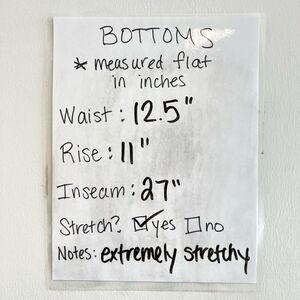 BOTTOMS
* measured flat
in inches
Waist: 12.5"
Rise: 11"
Inseam: 27"
Stretch? ☑yes ☐no
Notes: extremely stretchy